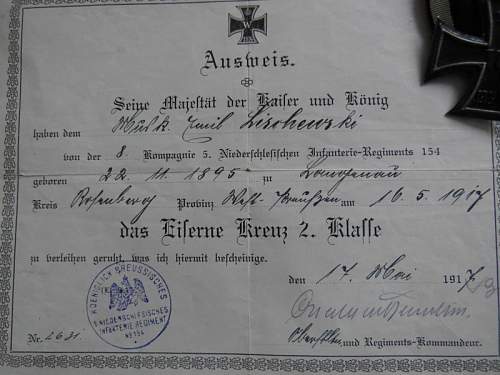 W
Ausweis.
Seine Majestät der Kaiser und König
haben dem Musk. Emil Lischewski
von der 8. Kompagnie 5. Niederschlesischen Infanterie-Regiments 154
geboren 22. 11. 1895 zu
Kreis Rosenberg Provinz West-Preußen am 16. 5. 1917
das Eiserne Kreuz 2. Klasse
zu verleihen geruht, was ich hiermit bescheinige.
den 17. Mai 1917
KOENIGLICH PREUSSISCHES
5. NIEDERSCHLESISCHES
INFANTERIE REGIMENT
No 154
Nr. 2631
und Regiments-Kommandeur.